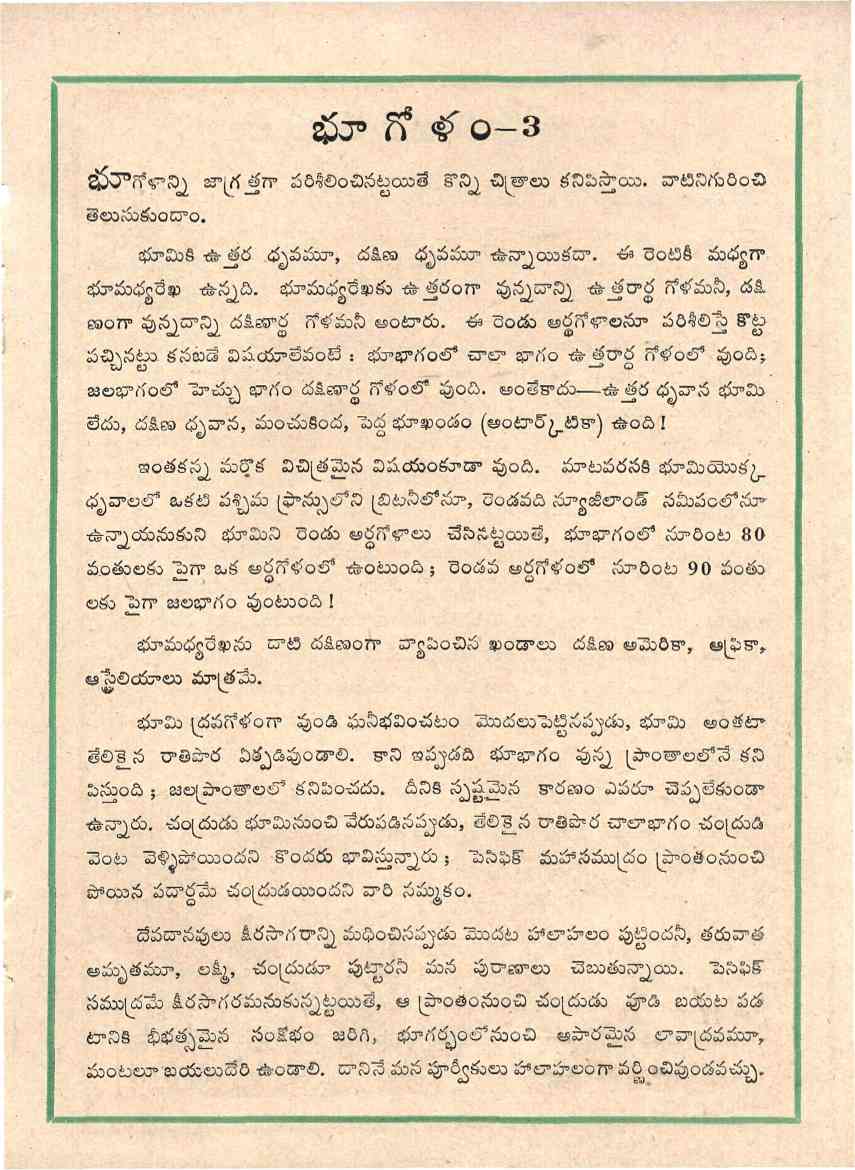 భూ గో ళ ం–3
భూగోళాన్ని జాగ్రత్తగా పరిశీలించినట్టయితే కొన్ని చిత్రాలు కనిపిస్తాయి. వాటినిగురించి
తెలుసుకుందాం.
భూమికి ఉత్తర ధృవమూ, దక్షిణ ధృవమూ ఉన్నాయికదా. ఈ రెంటికీ మధ్యగా
భూమధ్యరేఖ ఉన్నది. భూమధ్యరేఖకు ఉత్తరంగా వున్నదాన్ని ఉత్తరార్థ గోళమనీ, దక్షి
ణంగా వున్నదాన్ని దక్షిణార్థ గోళమనీ అంటారు. ఈ రెండు అర్థగోళాలనూ పరిశీలిస్తే కొట్ట
వచ్చినట్టు కనబడే విషయాలేవంటే : భూభాగంలో చాలా భాగం ఉత్తరార్ధ గోళంలో వుంది;
జలభాగంలో హెచ్చు భాగం దక్షిణార్థ గోళంలో వుంది. అంతేకాదు—ఉత్తర ధృవాన భూమి
లేదు, దక్షిణ ధృవాన, మంచుకింద, పెద్ద భూఖండం (అంటార్క్‌టికా) ఉంది!
ఇంతకన్న మర్తొక విచిత్రమైన విషయంకూడా వుంది. మాటవరసకి భూమియొక్క
ధృవాలలో ఒకటి పశ్చిమ ఫ్రాన్సులోని బ్రిటనీలోనూ, రెండవది న్యూజీలాండ్ సమీపంలోనూ
ఉన్నాయనుకుని భూమిని రెండు అర్ధగోళాలు చేసినట్టయితే, భూభాగంలో నూరింట 80
వంతులకు పైగా ఒక అర్ధగోళంలో ఉంటుంది; రెండవ అర్ధగోళంలో నూరింట 90 వంతు
లకు పైగా జలభాగం వుంటుంది!
భూమధ్యరేఖను దాటి దక్షిణంగా వ్యాపించిన ఖండాలు దక్షిణ అమెరికా, ఆఫ్రికా,
ఆస్ట్రేలియాలు మాత్రమే.
భూమి ద్రవగోళంగా వుండి ఘనీభవించటం మొదలుపెట్టినప్పుడు, భూమి అంతటా
తేలికైన రాతిపొర ఏర్పడివుండాలి. కాని ఇప్పుడది భూభాగం వున్న ప్రాంతాలలోనే కని
పిస్తుంది; జలప్రాంతాలలో కనిపించదు. దీనికి స్పష్టమైన కారణం ఎవరూ చెప్పలేకుండా
ఉన్నారు. చంద్రుడు భూమినుంచి వేరుపడినప్పుడు, తేలికైన రాతిపొర చాలాభాగం చంద్రుడి
వెంట వెళ్ళిపోయిందని కొందరు భావిస్తున్నారు; పెసిఫిక్ మహాసముద్రం ప్రాంతంనుంచి
పోయిన పదార్ధమే చంద్రుడయిందని వారి నమ్మకం.
దేవదానవులు క్షీరసాగరాన్ని మధించినప్పుడు మొదట హాలాహలం పుట్టిందనీ, తరువాత
అమృతమూ, లక్ష్మీ, చంద్రుడూ పుట్టారనీ మన పురాణాలు చెబుతున్నాయి. పెసిఫిక్
సముద్రమే క్షీరసాగరమనుకున్నట్టయితే, ఆ ప్రాంతంనుంచి చంద్రుడు వూడి బయట పడ
టానికి భీభత్సమైన సంక్షోభం జరిగి, భూగర్భంలోనుంచి అపారమైన లావాద్రవమూ,
మంటలూ బయలుదేరి ఉండాలి. దానినే మన పూర్వీకులు హాలాహలంగా వర్ణించివుండవచ్చు.